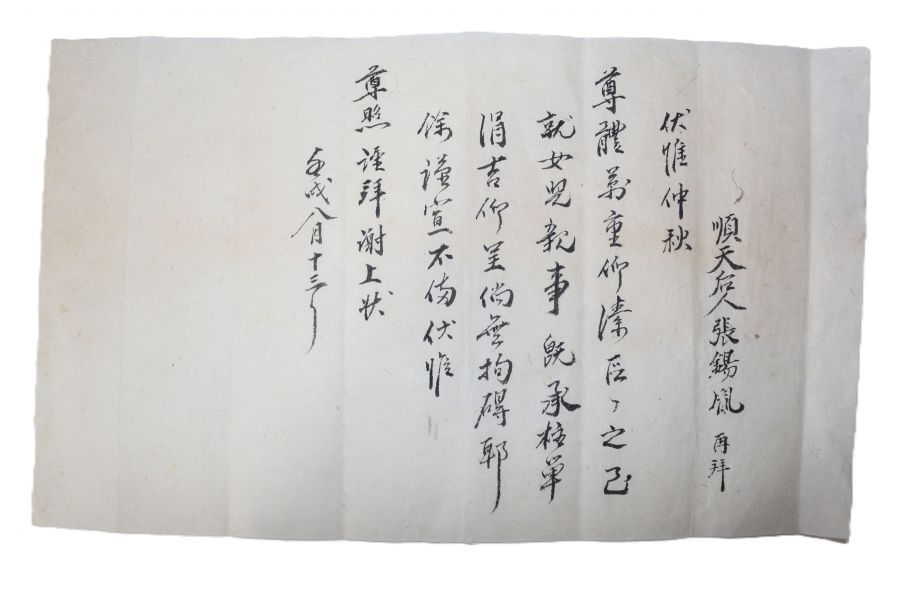 順天后人張錫鳳 再拜
伏惟仲秋
尊體萬重仰溸區〻之至
就女兒親事既承柱單
涓吉仰呈倘無拘碍耶
餘謹宣不備伏惟
尊照謹拜謝上狀
壬戌八月十三日